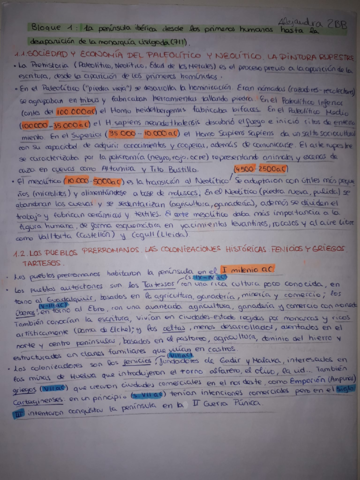 Alejandra 2BB
Bloque 1: La península ibérica desde los primeros humanos hasta la
desaparición de la monarquía visigoda (711)
1.1 SOCIEDAD Y ECONOMÍA DEL PALEOLÍTICO Y NEOLÍTICO. LA PINTURA RUPESTRE
La Prehistoria (Paleolítico, Neolítico, Edad de los Metales) es el proceso previo a la aparición de la
escritura, desde la aparición de los primeros homínidos.
En el Paleolítico ("piedra vieja") se desarrolla la hominización. Eran nómadas
se agrupaban en tribus y fabricaban herramientas tallando piedra. En el Paleolítico inferior
(antes de 100 000 a.C) el Homo heidelbergensis fabricaba bifaces. En el Paleolítico
100.000-35.000 a.C el H sapiens neandertalensis el fuego e inicia ritos de enterra-
miento. En el Superior (35 000 - 10.000 a.C) el Homo Sapiens Sapiens da un salto sociocultural
con su capacidad de adquirir conocimientos y cooperar, además de comunicar. El arte rupestre
se caracterizaba por la policromía (negro, rojo, ocre) representando animales y escenas de
caza en cuevas como Altamira y Tito Bustillo
El mesolítico (10.000 5000 a.C) es la transición al Neolítico. Se adaptaron a un clima más
y alimentándose a base de mariscos. En el Neolítico (piedra nueva, pulida) se
abandonan las cuevas y se sedentarizan (agricultura, ganadería), además se divide el
trabajo y fabrican cerámicas y textiles. El arte mesolítico daba más importancia a la
figura humana, de forma esquemática en yacimientos levantinos, rocales y al aire libre
como Valltorta (Castellón) y Cogull (Lleida)
1.2 LOS PUEBLOS PRERROMANOS. LAS COLONIZACIONES HISTÓRICAS: FENICIOS Y GRIEGOS
TARTESOS.
Los pueblos prerromanos habitaron la península en el I milenio a.C
Los pueblos autóctonos son los Tartesos con una rica cultura poco conocida, en
torno al Guadalquivir, basados en la agricultura, ganadería, minería y comercio; los
Íberos en torno al Ebro, con una avanzada agricultura, ganadería y comercio con moneda
También conocían la escritura, vivían en ciudades-estado regidas por monarcas y ricos
artísticamente (Dama de Elche); y los celtas, menos desarrollados, asentados en el
norte y centro peninsular, basados en el pastoreo, agricultura, dominio del hierro y
estructurados en clanes familiares que vivían en castros.
Los colonizadores son los fenicios fundadores de Gadir y Malaca, interesados en
las minas de Huelva que introdujeron el torno alfarero, el olivo, la vid... También
griegos que crearon ciudades comerciales en el noreste, como Emporion (Ampurias)
Cartagineses en un principio tenían intenciones comerciales pero en el siglo
III intentaron conquistar la península en la II Guerra Púnica.